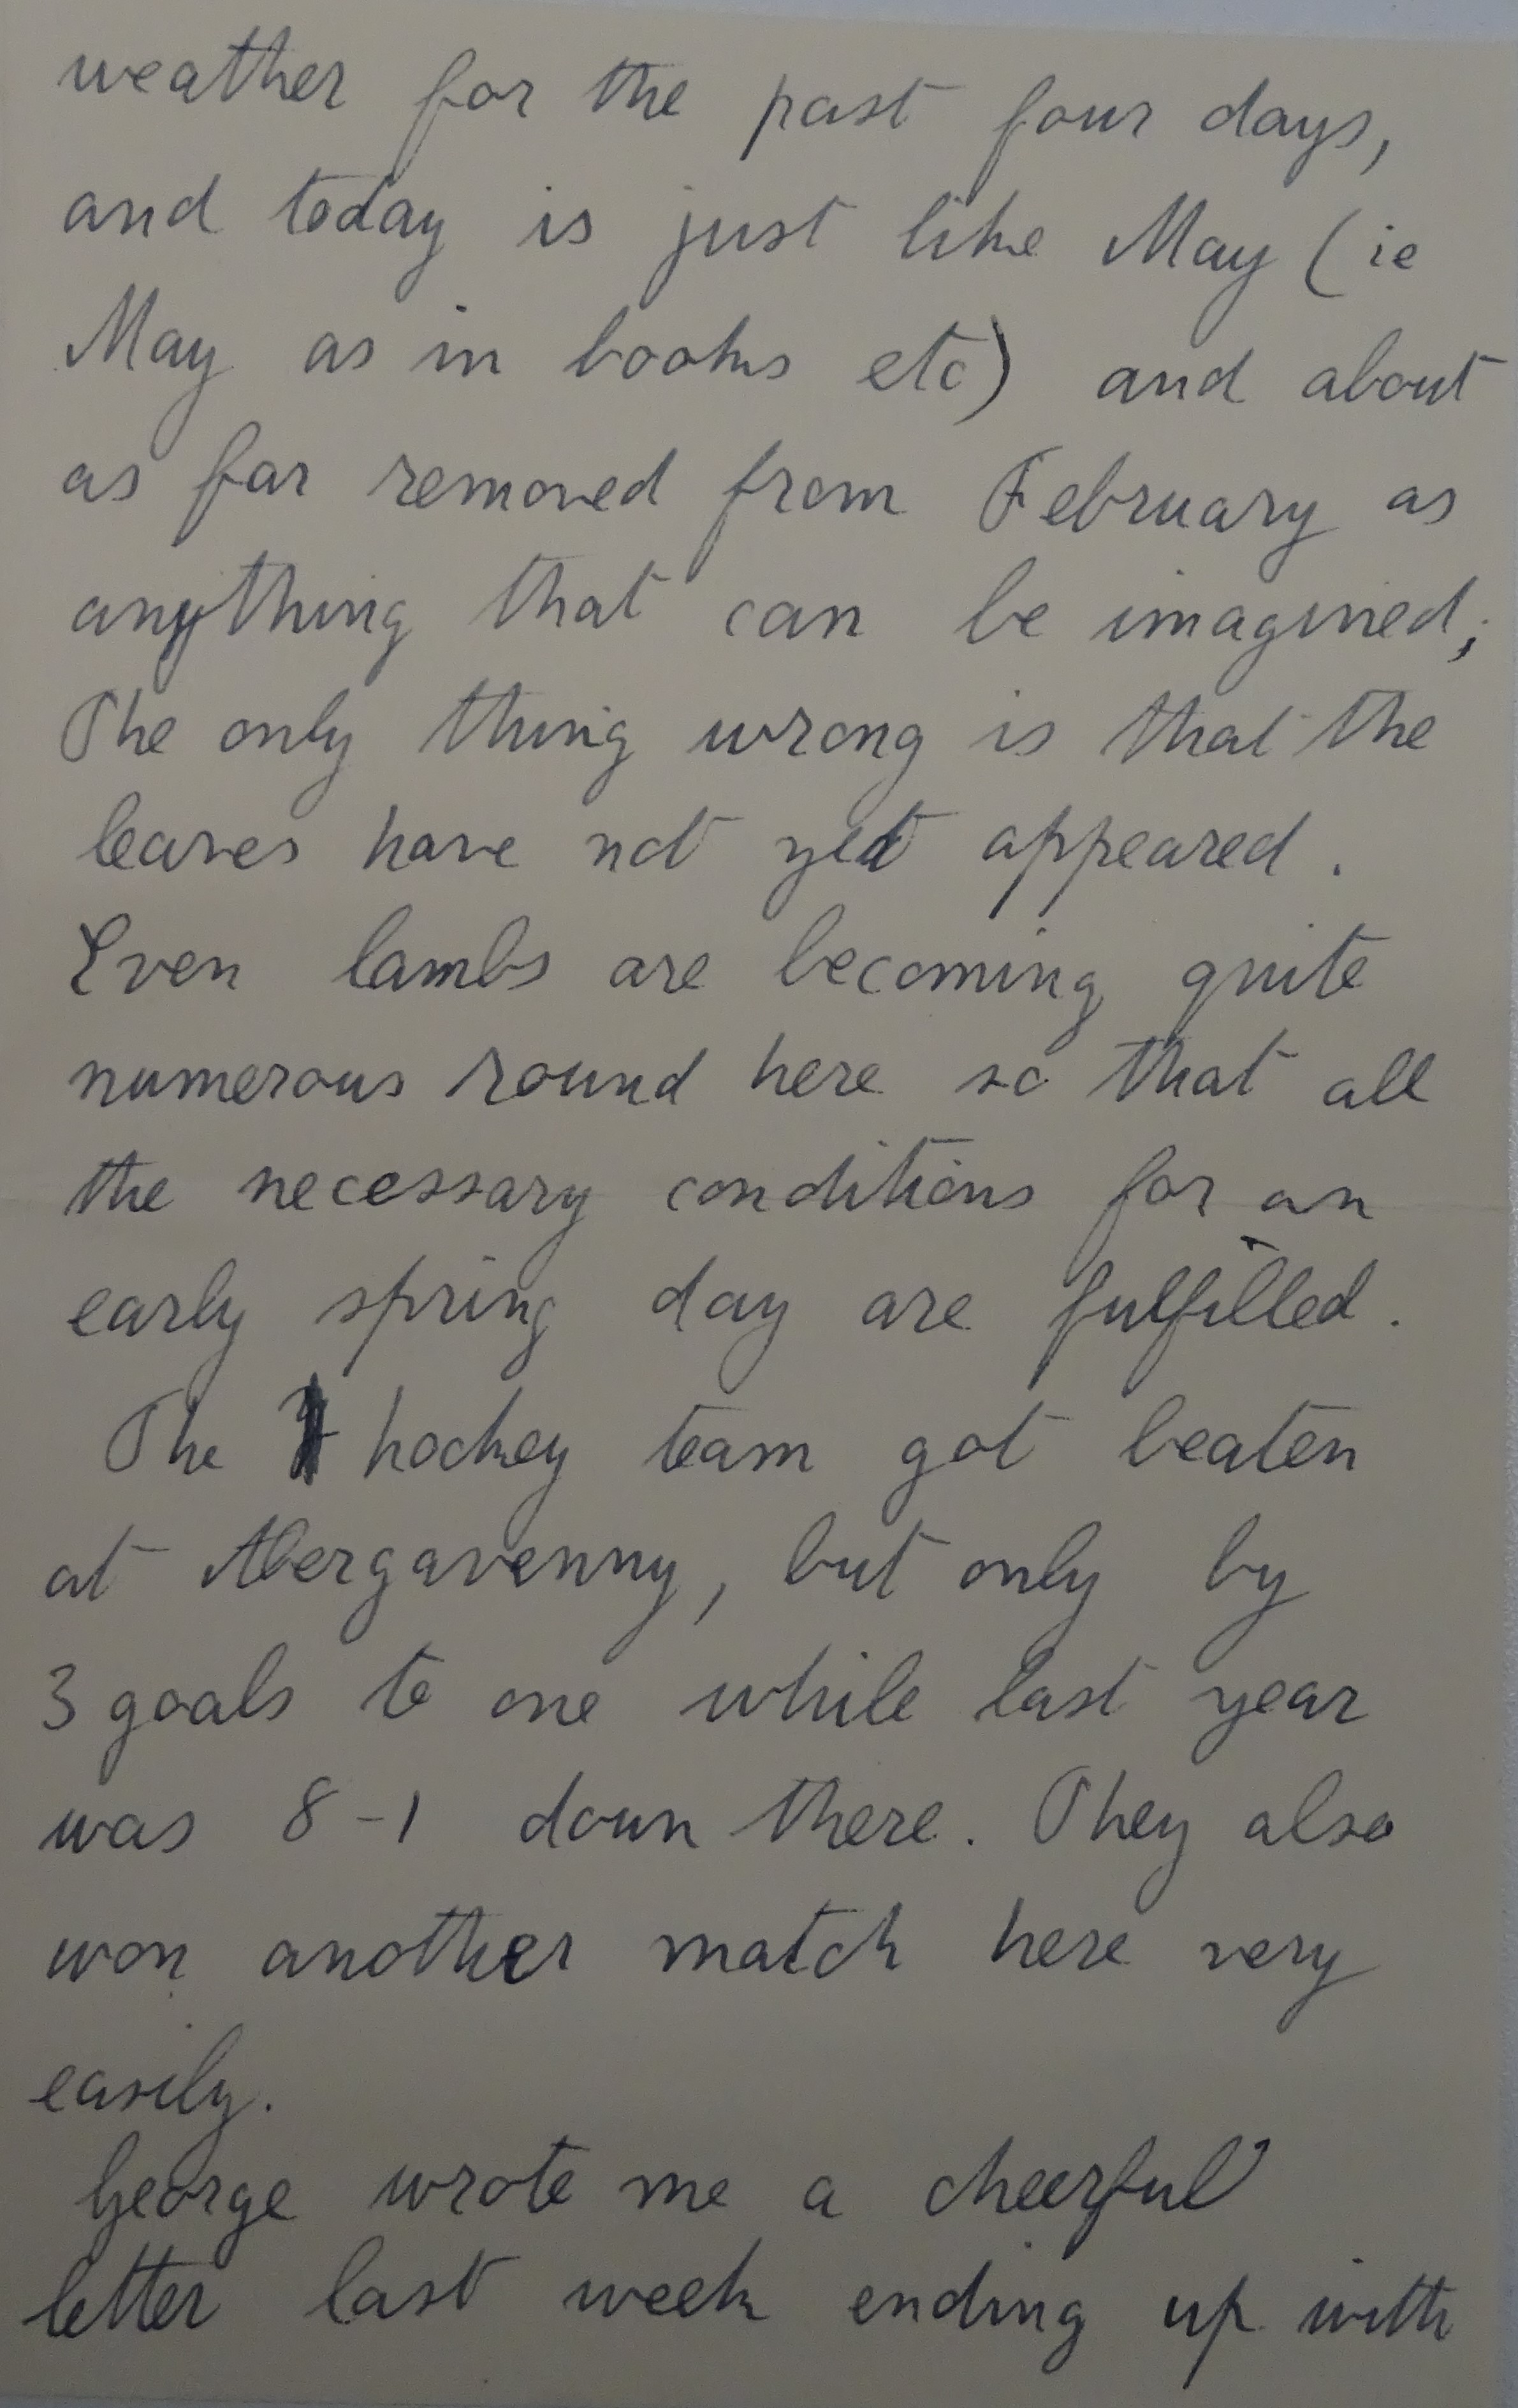 weather for the past four days,
and today is just like May (ie
May as in books etc) and about
as far removed from February as
anything that can be imagined;
The only thing wrong is that the
leaves have not yet appeared.
Even lambs are becoming quite
numerous round here so that all
the necessary conditions for an
early spring day are fulfilled.
The hockey team got beaten
at Abergavenny, but only by
3 goals to one while last year
was 8-1 down there. They also
won another match here very
easily.
George wrote me a cheerful
letter last week ending up with